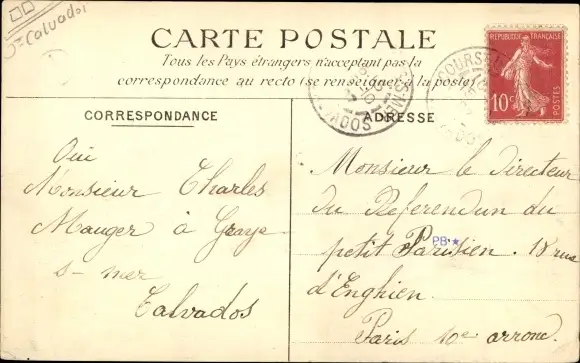 Calvados
CARTE POSTALE
Tous les Pays étrangers n'acceptant pas la
correspondance au recto (se renseigner à la poste)
REPUBLIQUE FRANÇAISE
10c
POSTES
COURSEU
S-MER
VADOS
CORRESPONDANCE
ADRESSE
Oui
Monsieur Charles
Mauger à Graye
s- mer
Calvados
Monsieur le Directeur
du Referendun du
petit Parisien. 18 rue
d'Enghien
Paris 10e arrond.
PB★